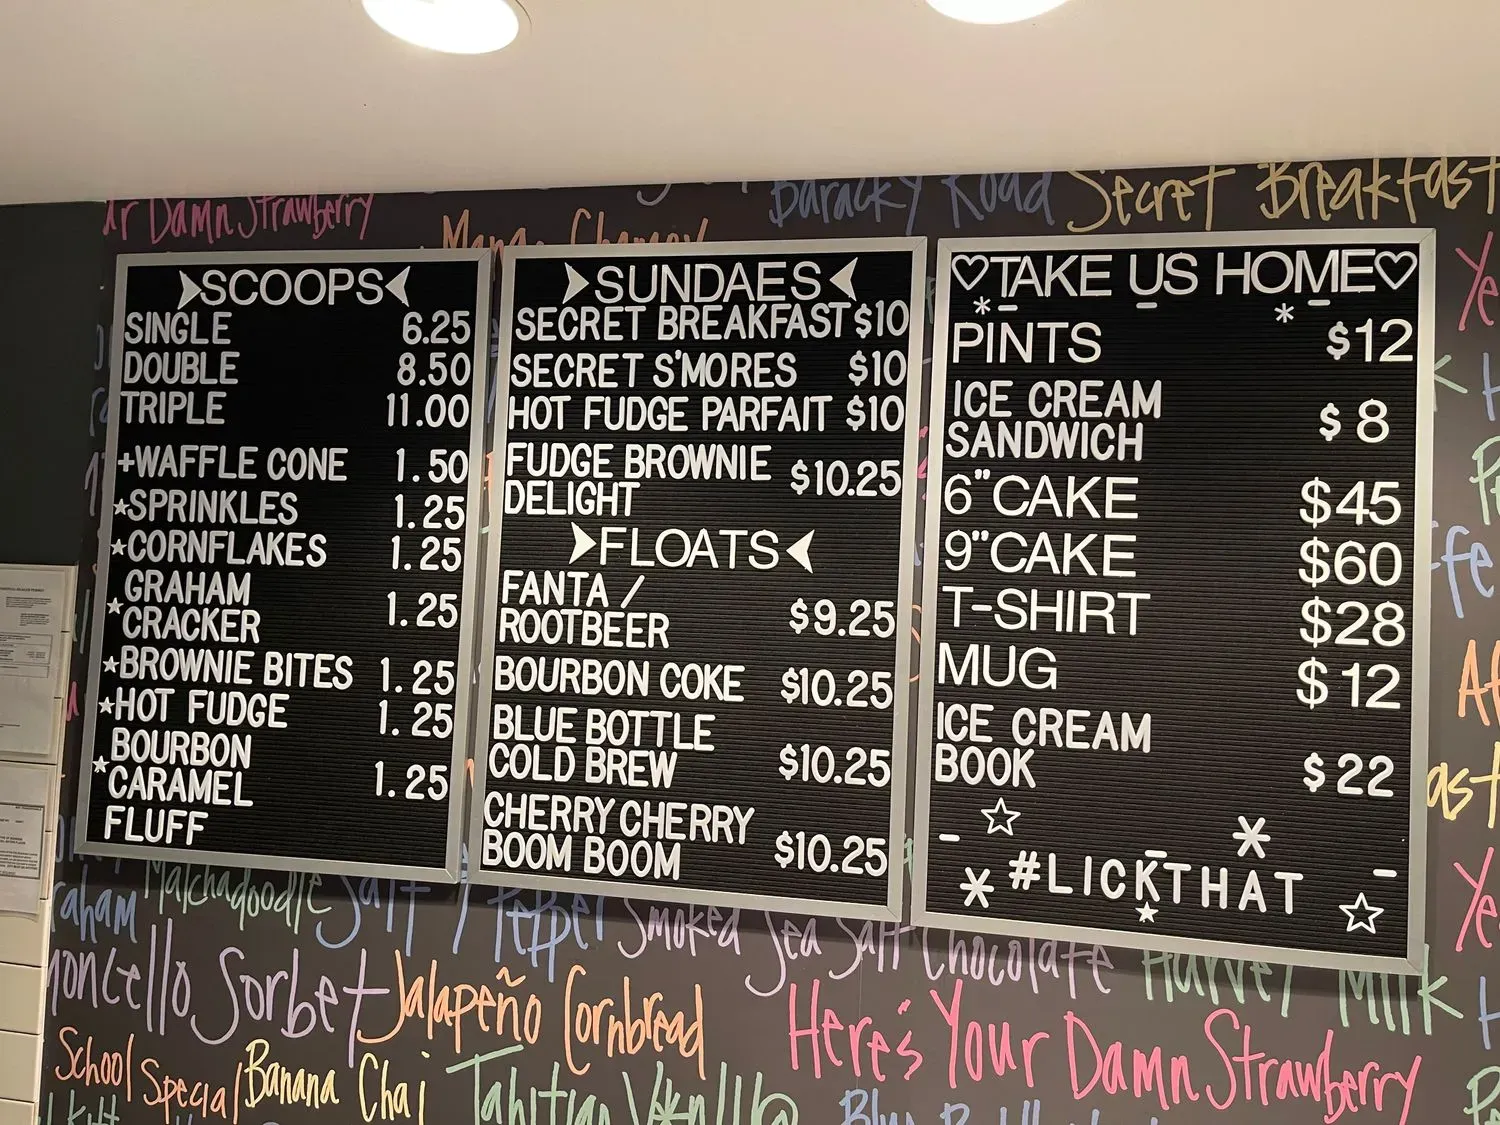 Damn Strawberry
Baracky Road
Secret Breakfast
SCOOPS
SINGLE 6.25
DOUBLE 8.50
TRIPLE 11.00
+WAFFLE CONE 1.50
★SPRINKLES 1.25
★CORNFLAKES 1.25
GRAHAM
★CRACKER 1.25
★BROWNIE BITES 1.25
★HOT FUDGE 1.25
BOURBON
★CARAMEL 1.25
FLUFF
SUNDAES
SECRET BREAKFAST $10
SECRET S'MORES $10
HOT FUDGE PARFAIT $10
FUDGE BROWNIE
DELIGHT $10.25
FLOATS
FANTA /
ROOTBEER $9.25
BOURBON COKE $10.25
BLUE BOTTLE
COLD BREW $10.25
CHERRY CHERRY
BOOM BOOM $10.25
♡TAKE US HOME♡
PINTS $12
ICE CREAM
SANDWICH $8
6"CAKE $45
9"CAKE $60
T-SHIRT $28
MUG $12
ICE CREAM
BOOK $22
#LICKTHAT
Matchadoodle
Salt & Pepper
Smoked Sea Salt Chocolate
Harvey Milk
Sorbet
Jalapeño Cornbread
Here's Your Damn Strawberry
School Special
Banana Chai
Tahitian Vanilla